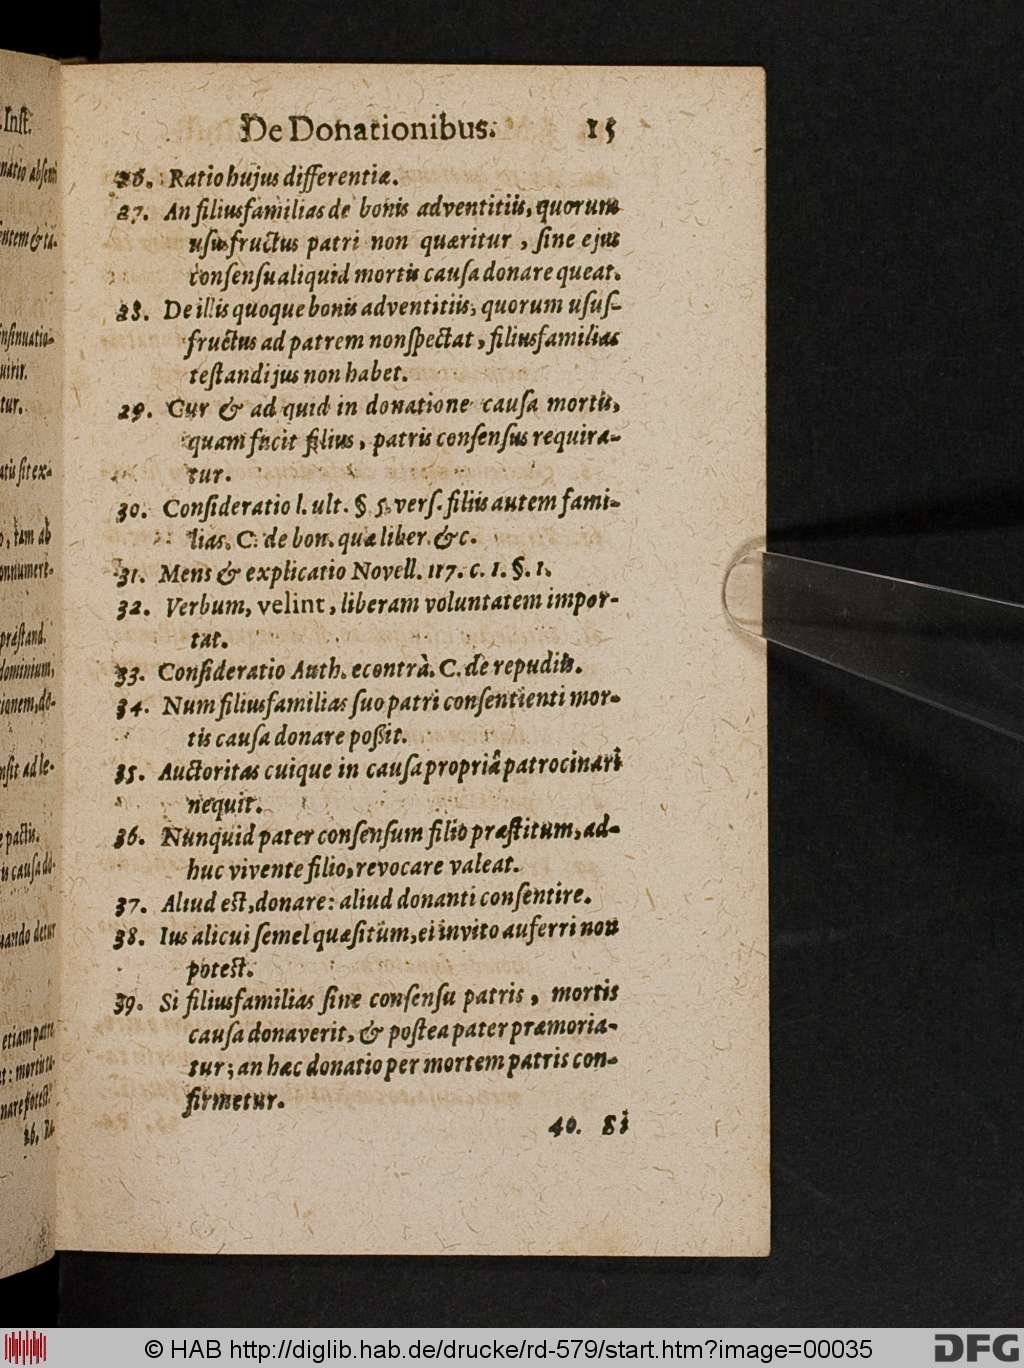 De Donationibus. 15
26. Ratio hujus differentiæ.
27. An filiusfamilias de bonis adventitiis, quorum
usufructus patri non quæritur, sine ejus
consensu aliquid mortis causa donare queat.
28. De illis quoque bonis adventitiis, quorum usus-
fructus ad patrem non spectat, filiusfamilias
testandi jus non habet.
29. Cur & ad quid in donatione causa mortis,
quam facit filius, patris consensus requira-
tur.
30. Consideratio l. ult. §. 5. vers. filiis autem fami-
lias. C. de bon. quæ liber. &c.
31. Mens & explicatio Novell. 117. c. 1. §. 1.
32. Verbum, velint, liberam voluntatem impor-
tat.
33. Consideratio Auth. econtrà. C. de repudiis.
34. Num filiusfamilias suo patri consentienti mor-
tis causa donare poßit.
35. Auctoritas cuique in causa propriâ patrocinari
nequit.
36. Nunquid pater consensum filio præstitum, ad-
huc vivente filio, revocare valeat.
37. Aliud est, donare: aliud donanti consentire.
38. Ius alicui semel quæsitum, ei invito auferri non
potest.
39. Si filiusfamilias sine consensu patris, mortis
causa donaverit, & postea pater præmoria-
tur; an hæc donatio per mortem patris con-
firmetur.
40. Si
© HAB http://diglib.hab.de/drucke/rd-579/start.htm?image=00035
DFG